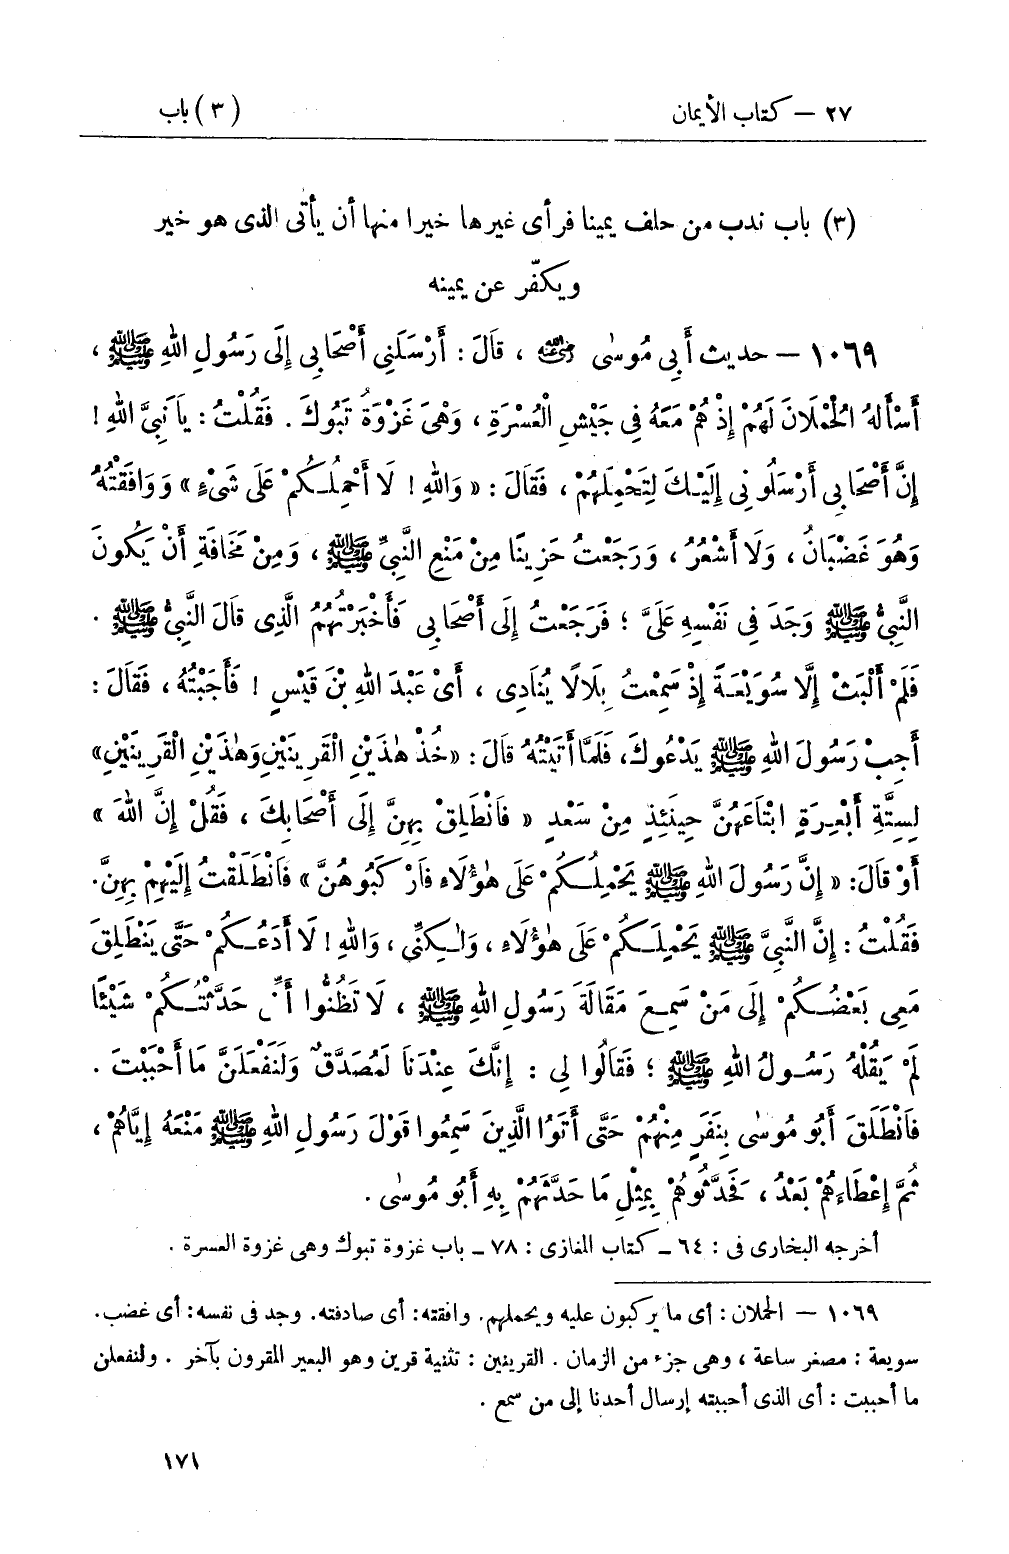 ٢٧ – كتاب الأيمان (٣) باب
(٣) باب ندب من حلف يمينا فرأى غيرها خيرا منها أن يأتى الذى هو خير
ويكفّر عن يمينه
١٠٦٩ – حديث أَبِي مُوسٰى رضي الله عنه ، قَالَ : أَرْسَلَنِي أَصْحَابِي إِلَى رَسُولِ اللهِ ﷺ ،
أَسْأَلهُ الْحُمْلَانَ لَهُمْ إِذْ هُمْ مَعَهُ فِي جَيْشِ الْعُسْرَةِ ، وَهْىَ غَزْوَةُ تَبُوكَ . فَقُلْتُ : يَا نَبِيَّ اللهِ !
إِنَّ أَصْحَابِي أَرْسَلُونِي إِلَيْكَ لِتَحْمِلَهُمْ ، فَقَالَ : « وَاللهِ ! لَا أَحْمِلُكُمْ عَلَى شَيْءٍ » وَوَافَقْتُهُ
وَهُوَ غَضْبَانُ ، وَلَا أَشْعُرُ ، وَرَجَعْتُ حَزِينًا مِنْ مَنْعِ النَّبِيِّ ﷺ ، وَمِنْ مَخَافَةِ أَنْ يَكُونَ
النَّبِيُّ ﷺ وَجَدَ فِي نَفْسِهِ عَلَيَّ ؛ فَرَجَعْتُ إِلَى أَصْحَابِي فَأَخْبَرْتُهُمُ الَّذِى قَالَ النَّبِيُّ ﷺ .
فَلَمْ أَلْبَثْ إِلَّا سُوَيْعَةً إِذْ سَمِعْتُ بِلَالًا يُنَادِى ، أَىْ عَبْدَ اللهِ بْنَ قَيْسٍ ! فَأَجَبْتُهُ ، فَقَالَ :
أَجِبْ رَسُولَ اللهِ ﷺ يَدْعُوكَ، فَلَمَّا أَتَيْتُهُ قَالَ : «خُذْ هٰذَيْنِ الْقَرِينَيْنِ وَهٰذَيْنِ الْقَرِينَيْنِ»
لِسِتَّةِ أَبْعِرَةٍ ابْتَاعَهُنَّ حِينَئِذٍ مِنْ سَعْدٍ « فَانْطَلِقْ بِهِنَّ إِلَى أَصْحَابِكَ ، فَقُلْ إِنَّ اللهَ »
أَوْ قَالَ: « إِنَّ رَسُولَ اللهِ ﷺ يَحْمِلُكُمْ عَلَى هٰؤُلَاءِ فَارْكَبُوهُنَّ » فَانْطَلَقْتُ إِلَيْهِمْ بِهِنَّ.
فَقُلْتُ : إِنَّ النَّبِيَّ ﷺ يَحْمِلُكُمْ عَلَى هٰؤُلَاءِ ، وَلٰكِنِّى ، وَاللهِ ! لَا أَدَعُكُمْ حَتَّى يَنْطَلِقَ
مَعِى بَعْضُكُمْ إِلَى مَنْ سَمِعَ مَقَالَةَ رَسُولِ اللهِ ﷺ ، لَا تَظُنُّوا حَدَّثْتُكُمْ شَيْئًا
لَمْ يَقُلْهُ رَسُولُ اللهِ ﷺ ؛ فَقَالُوا لِى : إِنَّكَ عِنْدَنَا لَمُصَدَّقٌ وَلَنَفْعَلَنَّ مَا أَحْبَبْتَ .
فَانْطَلَقَ أَبُو مُوسٰى بِنَفَرٍ مِنْهُمْ حَتَّى أَتَوُا الَّذِينَ سَمِعُوا قَوْلَ رَسُولِ اللهِ ﷺ مَنْعَهُ إِيَّاهُمْ ،
ثُمَّ إِعْطَاءَهُمْ بَعْدُ ، فَحَدَّثُوهُمْ بِمِثْلِ مَا حَدَّثَهُمْ بِهِ أَبُو مُوسٰى .
أخرجه البخارى فى : ٦٤ – كتاب المغازى : ٧٨ – باب غزوة تبوك وهى غزوة العسرة .
١٠٦٩ – الحملان : أى ما يركبون عليه ويحملهم. وافقته: أى صادفته. وجد فى نفسه: أى غضب.
سويعة : مصغر ساعة ، وهى جزء من الزمان . القرينين : تثنية قرين وهو البعير المقرون بآخر . ولنفعلن
ما أحببت : أى الذى أحببته إرسال أحدنا إلى من سمع .
١٧١